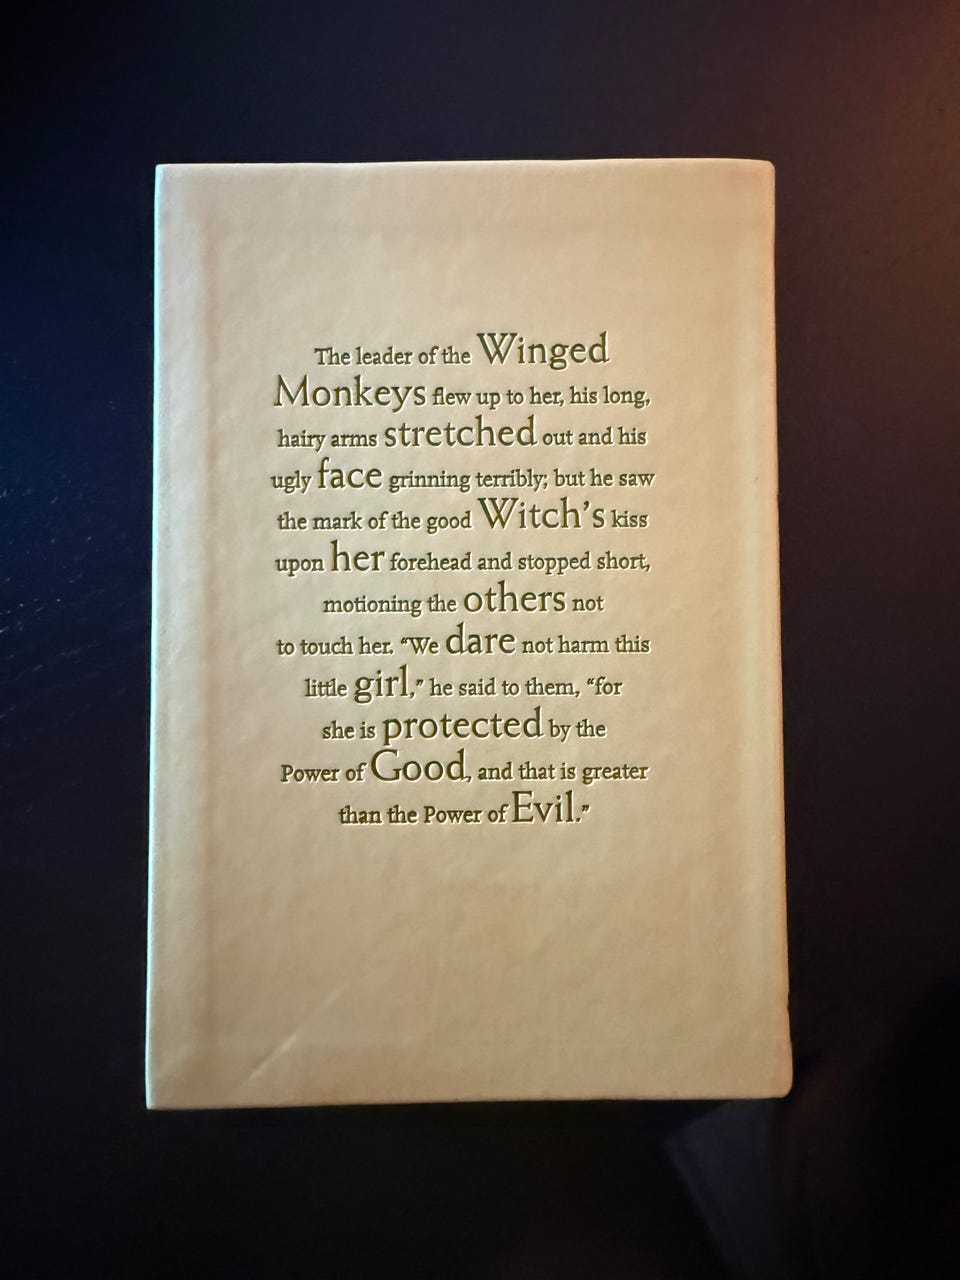 The leader of the Winged
Monkeys flew up to her, his long,
hairy arms stretched out and his
ugly face grinning terribly; but he saw
the mark of the good Witch's kiss
upon her forehead and stopped short,
motioning the others not
to touch her. “We dare not harm this
little girl,” he said to them, “for
she is protected by the
Power of Good, and that is greater
than the Power of Evil.”